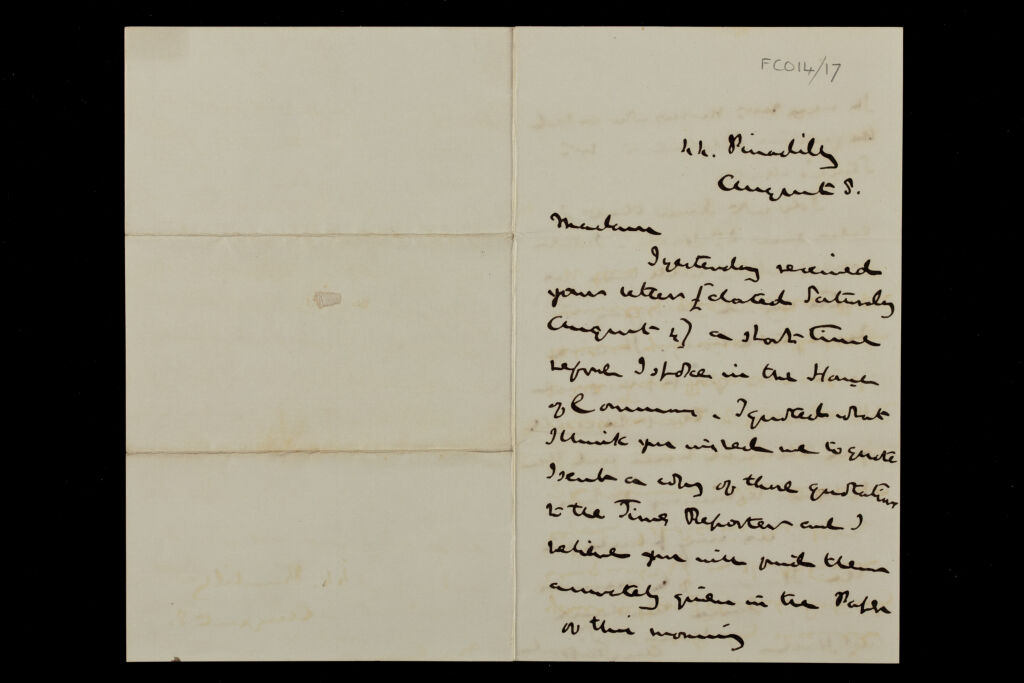 FCO14/17
44. Piccadilly
August 8.
Madam
I yesterday received
your letter [dated Saturday
August 4] a short time
before I spoke in the House
of Commons. I quoted what
I think you wished me to quote
I sent a copy of those quotations
to the Times Reporter and I
believe you will find them
accurately given in the Paper
of this morning